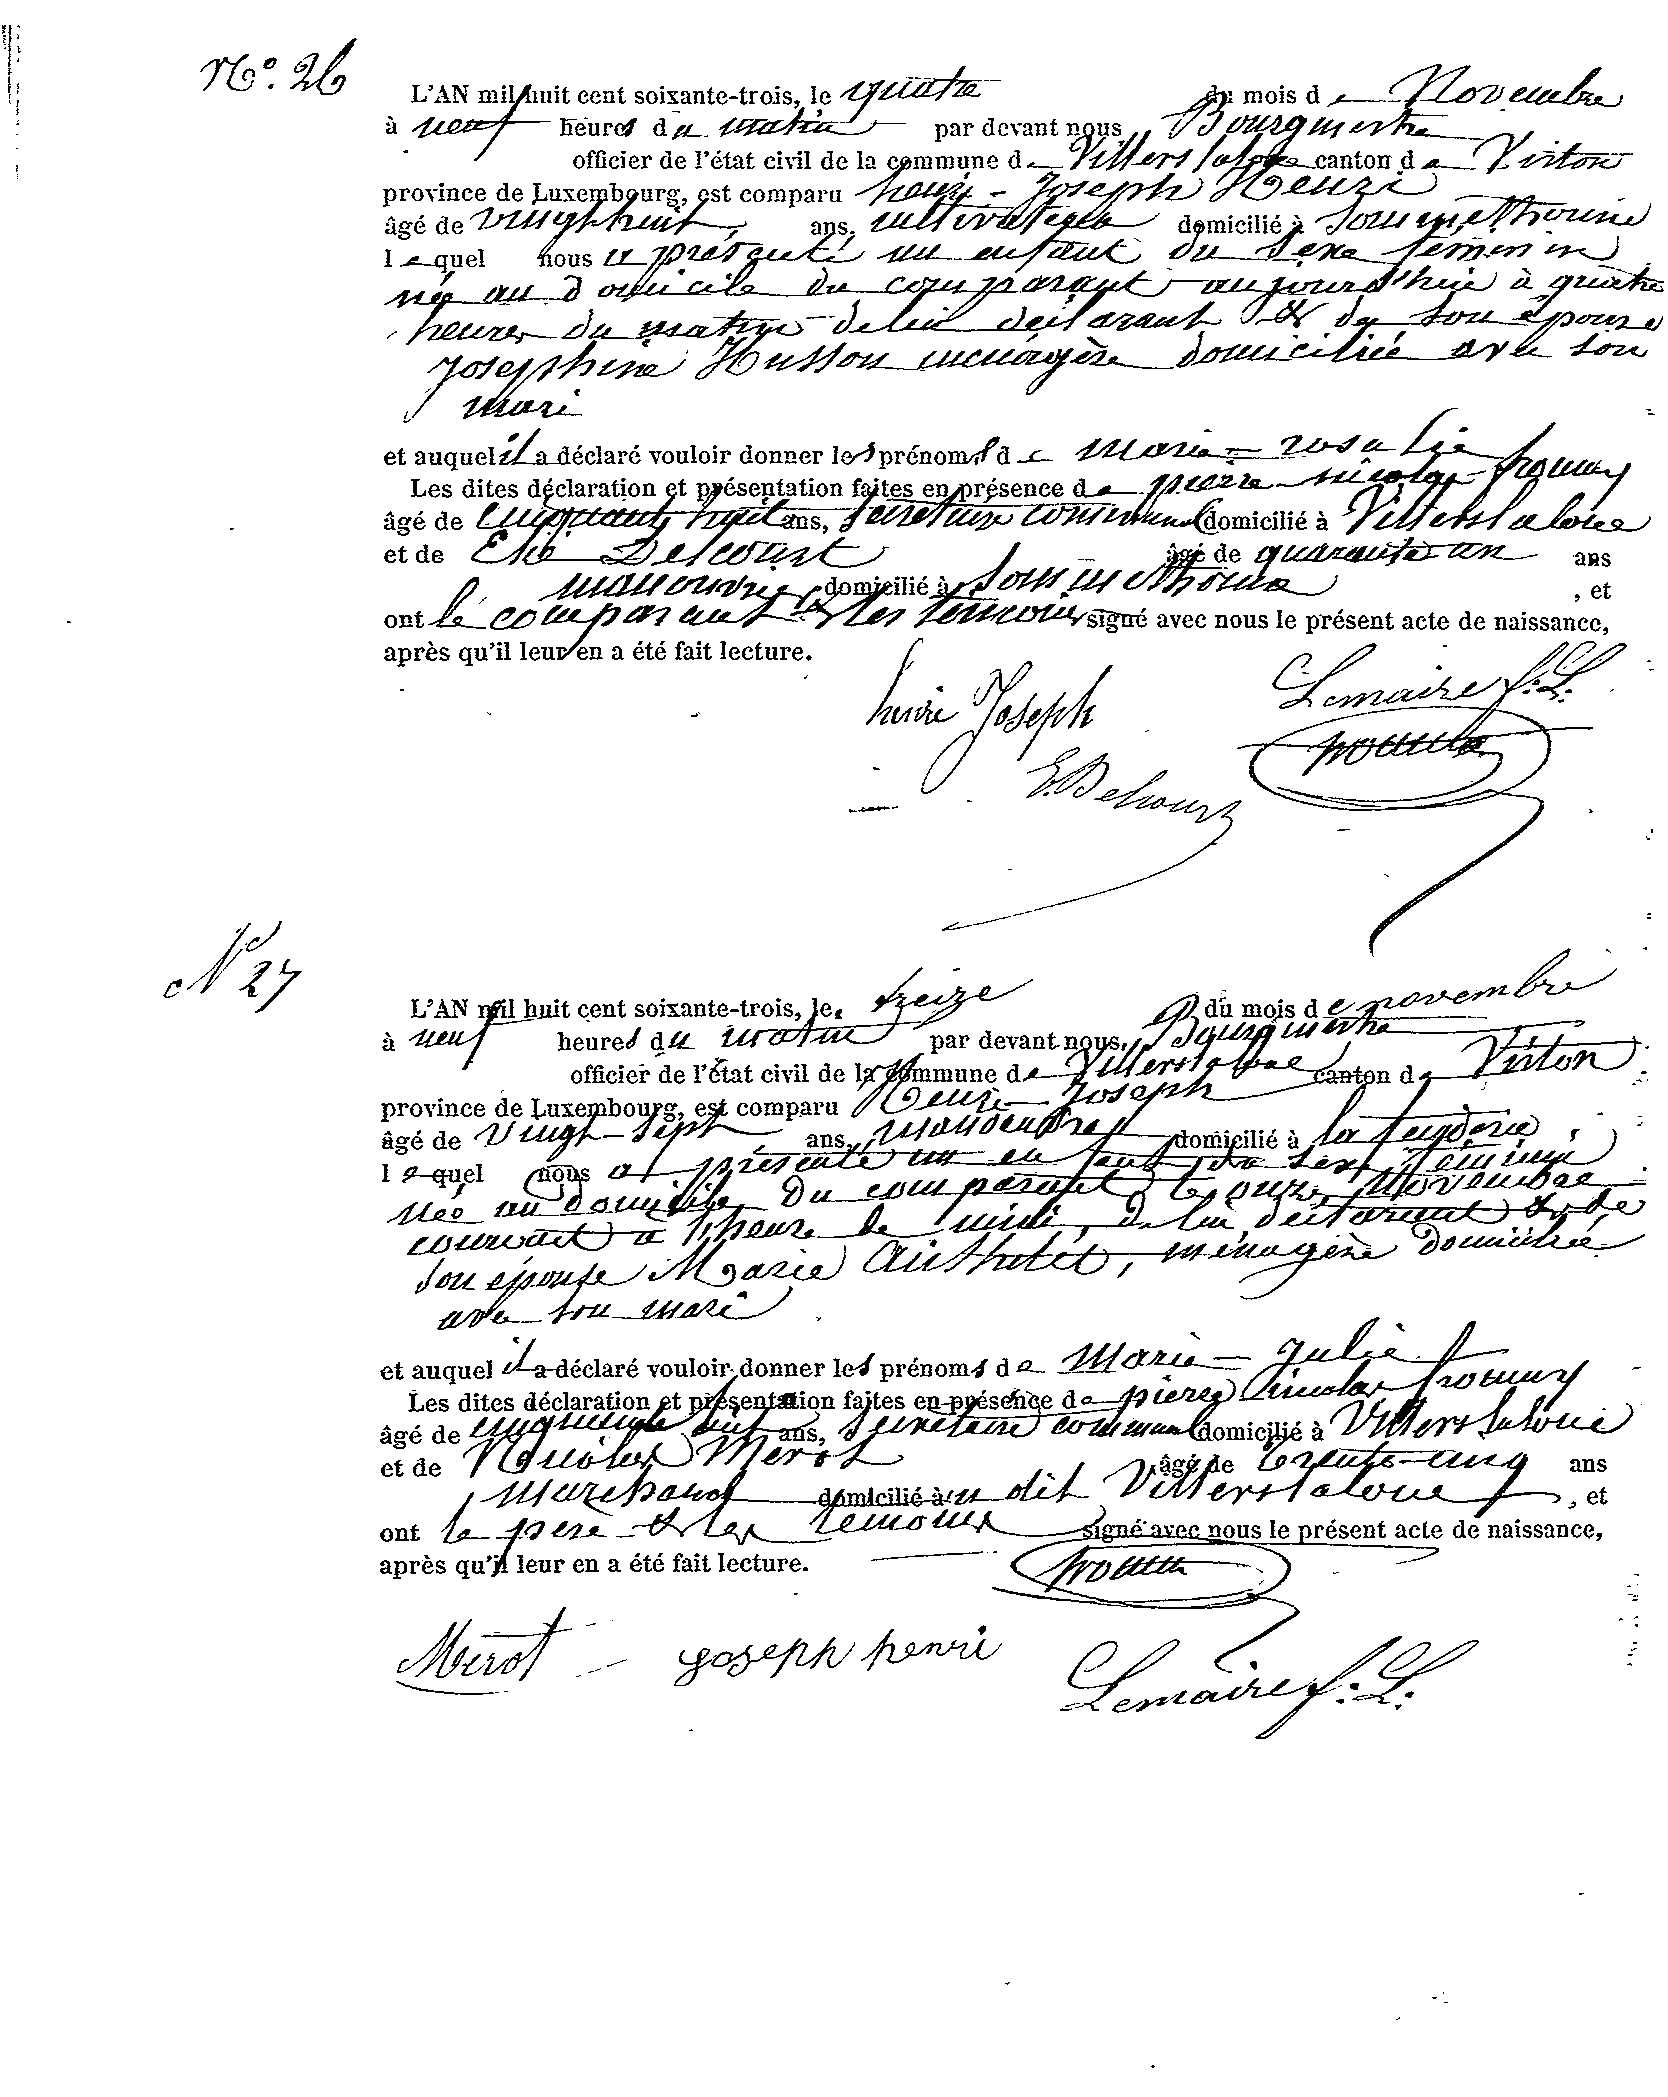 N°. 26
L'AN mil huit cent soixante-trois, le quatre du mois de Novembre
à neuf heures du matin par devant nous Bourgmestre
officier de l'état civil de la commune de Villers la loue canton de Virton
province de Luxembourg, est comparu henri-Joseph Henri
âgé de vingt huit ans, cultivateur domicilié à Sommethonne
lequel nous a présenté un enfant du sexe féminin
née au domicile du comparant aujourd'hui à quatre
heures du matin de lui déclarant & de son épouse
Josephine Husson ménagère domiciliée avec son
mari
et auquel il a déclaré vouloir donner les prénoms de marie-rosalie
Les dites déclaration et présentation faites en présence de pierre nicolas
âgé de cinquante huit ans, secrétaire communal domicilié à Villers la loue
et de Elie Delcourt âgé de quarante-un ans
manouvrier domicilié à Sommethonne , et
ont le comparant & les témoins signé avec nous le présent acte de naissance,
après qu'il leur en a été fait lecture.
henri Joseph Lemaire f: L:
E. Delcourt
N° 27
L'AN mil huit cent soixante-trois, le treize du mois de novembre
à neuf heures du matin par devant nous, Bourgmestre
officier de l'état civil de la commune de Villers la loue canton de Virton
province de Luxembourg, est comparu Henri-Joseph
âgé de vingt-sept ans, manoeuvre domicilié à
lequel nous a présenté un enfant du sexe féminin
née au domicile du comparant le onze novembre
courant à l'heure de midi, de lui déclarant & de
son épouse Marie, ménagère domiciliée
avec son mari
et auquel il a déclaré vouloir donner les prénoms de Marie-Julie
Les dites déclaration et présentation faites en présence de pierre nicolas
âgé de cinquante huit ans, secrétaire communal domicilié à Villers la loue
et de Nicolas Merot âgé de trente-cinq ans
marchand domicilié à au dit Villers la loue , et
ont le père & les témoins signé avec nous le présent acte de naissance,
après qu'il leur en a été fait lecture.
Merot Joseph henri Lemaire f: L: